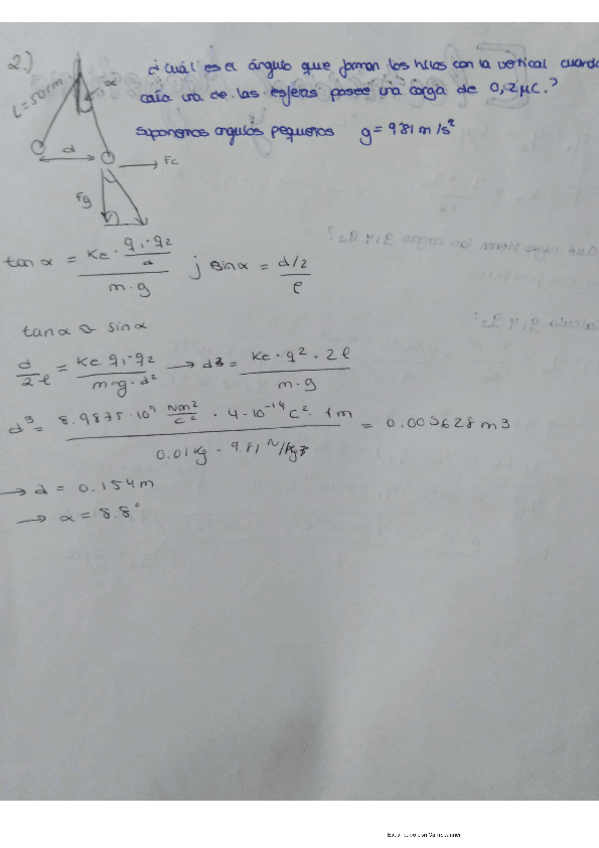 2.)
¿Cuál es el ángulo que forman los hilos con la vertical cuando
cada una de las esferas posee una carga de 0,2μC.?
Suponemos angulos pequeños g=981m/s²
L=50cm
α
d
Fc
Fg
tan α = Ke · q1·q2/d / m·g j sinα = d/2 / ℓ
tanα ≈ sinα
d/2ℓ = Ke q1·q2 / m·g·d² → d3 = Ke·q²·2ℓ / m·g
d³ = 8.9875·10⁹ Nm²/C² · 4·10⁻¹⁴C²· 1m / 0.01kg · 9.81 N/kg = 0.003628m3
→ d = 0.154m
→ α = 8.8°